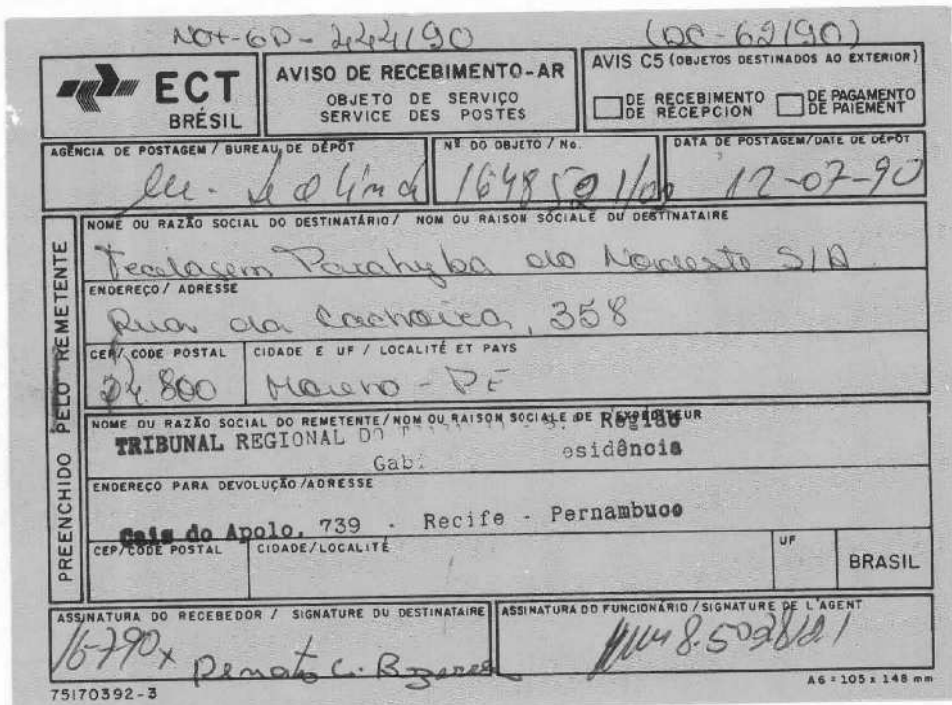 NOT-GP-444/90 (DC-62/90)
ECT
BRÉSIL
AVISO DE RECEBIMENTO-AR
OBJETO DE SERVIÇO
SERVICE DES POSTES
AVIS C5 (OBJETOS DESTINADOS AO EXTERIOR)
DE RECEBIMENTO
DE RÉCEPCION
DE PAGAMENTO
DE PAIEMENT
AGÊNCIA DE POSTAGEM / BUREAU DE DÉPÔT
Nº DO OBJETO / No.
DATA DE POSTAGEM/DATE DE DÉPÔT
12-07-90
PREENCHIDO PELO REMETENTE
NOME OU RAZÃO SOCIAL DO DESTINATÁRIO / NOM OU RAISON SOCIALE DU DESTINATAIRE
Tecelagem Parahyba do Nordeste S/A
ENDEREÇO / ADRESSE
Rua da Cachoeira, 358
CEP / CODE POSTAL
CIDADE E UF / LOCALITÉ ET PAYS
800 Moreno - PE
NOME OU RAZÃO SOCIAL DO REMETENTE / NOM OU RAISON SOCIALE DE L'EXPÉDITEUR
TRIBUNAL REGIONAL DO Região
Gab. esidência
ENDEREÇO PARA DEVOLUÇÃO / ADRESSE
Cais do Apolo, 739 - Recife - Pernambuco
CEP/CODE POSTAL
CIDADE/LOCALITÉ
UF
BRASIL
ASSINATURA DO RECEBEDOR / SIGNATURE DU DESTINATAIRE
ASSINATURA DO FUNCIONÁRIO / SIGNATURE DE L'AGENT
Renato C.
75170392-3
A6 = 105 x 148 mm